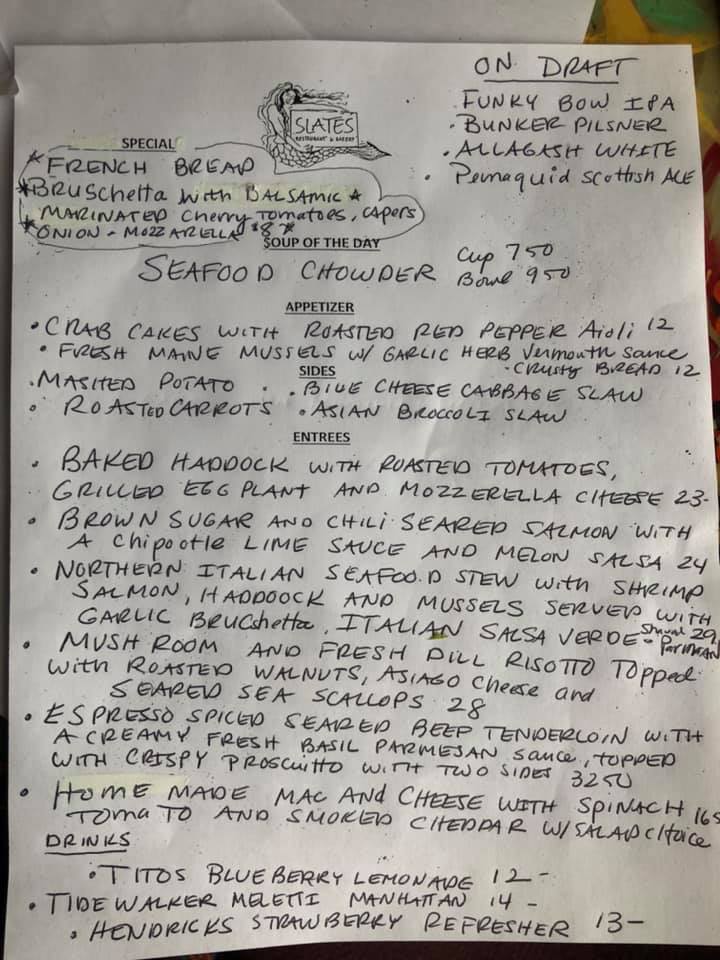 SLATES
RESTAURANT & BAKERY
ON DRAFT
FUNKY BOW IPA
• BUNKER PILSNER
• ALLAGASH WHITE
• Pemaquid Scottish ALE
SPECIAL
* FRENCH BREAD
* Bruschetta with BALSAMIC *
MARINATED Cherry Tomatoes, CAPERS
* ONION - MOZZARELLA $8 *
SOUP OF THE DAY
SEAFOOD CHOWDER
Cup 750
Bowl 950
APPETIZER
• CRAB CAKES WITH ROASTED RED PEPPER Aioli 12
• FRESH MAINE MUSSELS W/ GARLIC HERB Vermouth Sauce
- CRUSTY BREAD 12
SIDES
• MASHED POTATO • • BLUE CHEESE CABBAGE SLAW
• ROASTED CARROTS • ASIAN BROCCOLI SLAW
ENTREES
• BAKED HADDOCK WITH ROASTED TOMATOES,
GRILLED EGG PLANT AND MOZZERELLA CHEESE 23-
• BROWN SUGAR AND CHILI SEARED SALMON WITH
A Chipotle LIME SAUCE AND MELON SALSA 24
• NORTHERN ITALIAN SEAFOOD STEW with SHRIMP
SALMON, HADDOCK AND MUSSELS SERVED WITH
GARLIC BRUCshetta, ITALIAN SALSA VERDE - Shaved PARMEAN 29
• MUSHROOM AND FRESH DILL RISOTTO TOpped
with ROASTED WALNUTS, ASIAGO Cheese and
SEARED SEA SCALLOPS 28
• ESPRESSO SPICED SEARED BEEF TENDERLOIN WITH
A CREAMY FRESH BASIL PARMESAN Sauce, TOPPED
WITH CRISPY PROSCIUTTO WITH TWO SIDES 3250
• HOME MADE MAC AND CHEESE WITH SPINACH
TOMATO AND SMOKED CHEDDAR W/SALAD Choice
DRINKS
• TITOS BLUEBERRY LEMONADE 12 -
• TIDEWALKER MELETTI MANHATTAN 14 -
• HENDRICKS STRAWBERRY REFRESHER 13 -